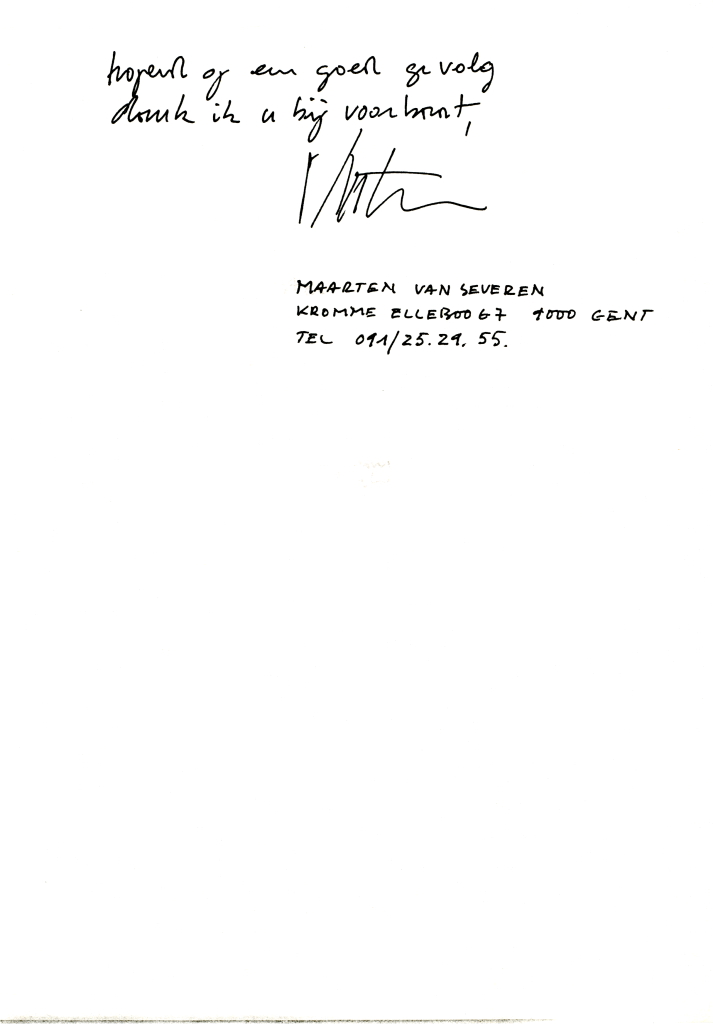 hopend op een goed gevolg
dank ik u bij voorbaat,
MAARTEN VAN SEVEREN
KROMME ELLEBOOG 7 9000 GENT
TEL 091/25.29.55.